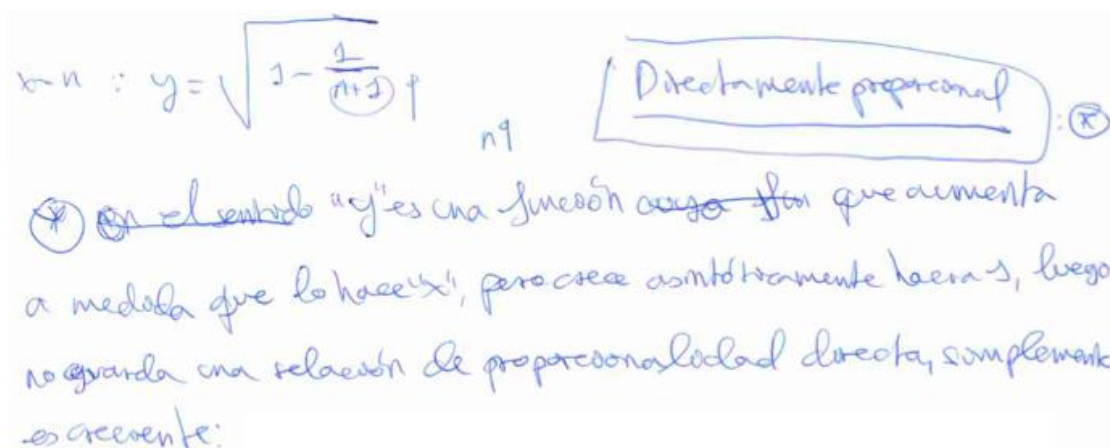 x-n : y = √(1 - 1/(n+1)) ↑
n↑
Directamente proporcional : *
* en el sentido "y" es una función cuya fun que aumenta
a medida que lo hace "x", pero crece asintóticamente hacia 1, luego
no guarda una relación de proporcionalidad directa, simplemente
es creciente: